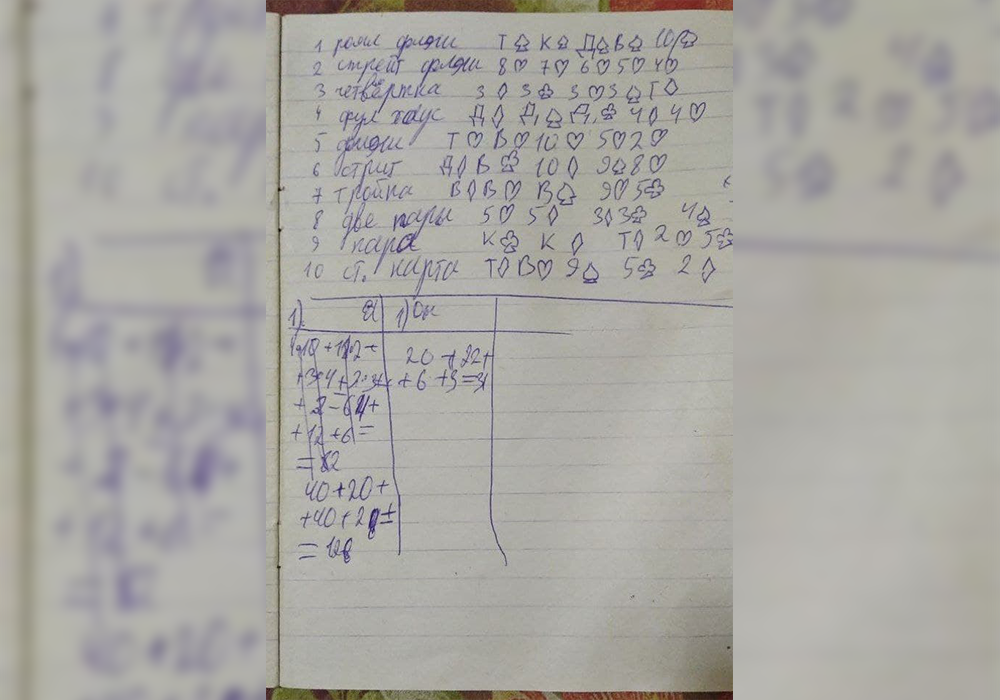 1 роял флэш Т♤ К♤ Д♤ В♤ 10♤
2 стрейт флэш 8♡ 7♡ 6♡ 5♡ 4♡
3 четвёртка 3♢ 3♧ 3♡ 3♤ Т♢
4 фул хаус Д♢ Д♤ Д♧ 4♢ 4♡
5 флэш Т♡ В♡ 10♡ 5♡ 2♡
6 стрит Д♢ В♧ 10♢ 9♤ 8♡
7 тройка В♢ В♡ В♤ 9♡ 5♧
8 две пары 5♡ 5♢ 3♢ 3♧ 4♤
9 пара К♧ К♢ Т♢ 2♡ 5♧
10 ст. карта Т♢ В♡ 9♤ 5♧ 2♢
1). Я 1) Он
20 + 22 +
+ 6 + 3 =
+ 12 + 6 =
40 + 20 +
+ 40 + 28 =
= 128